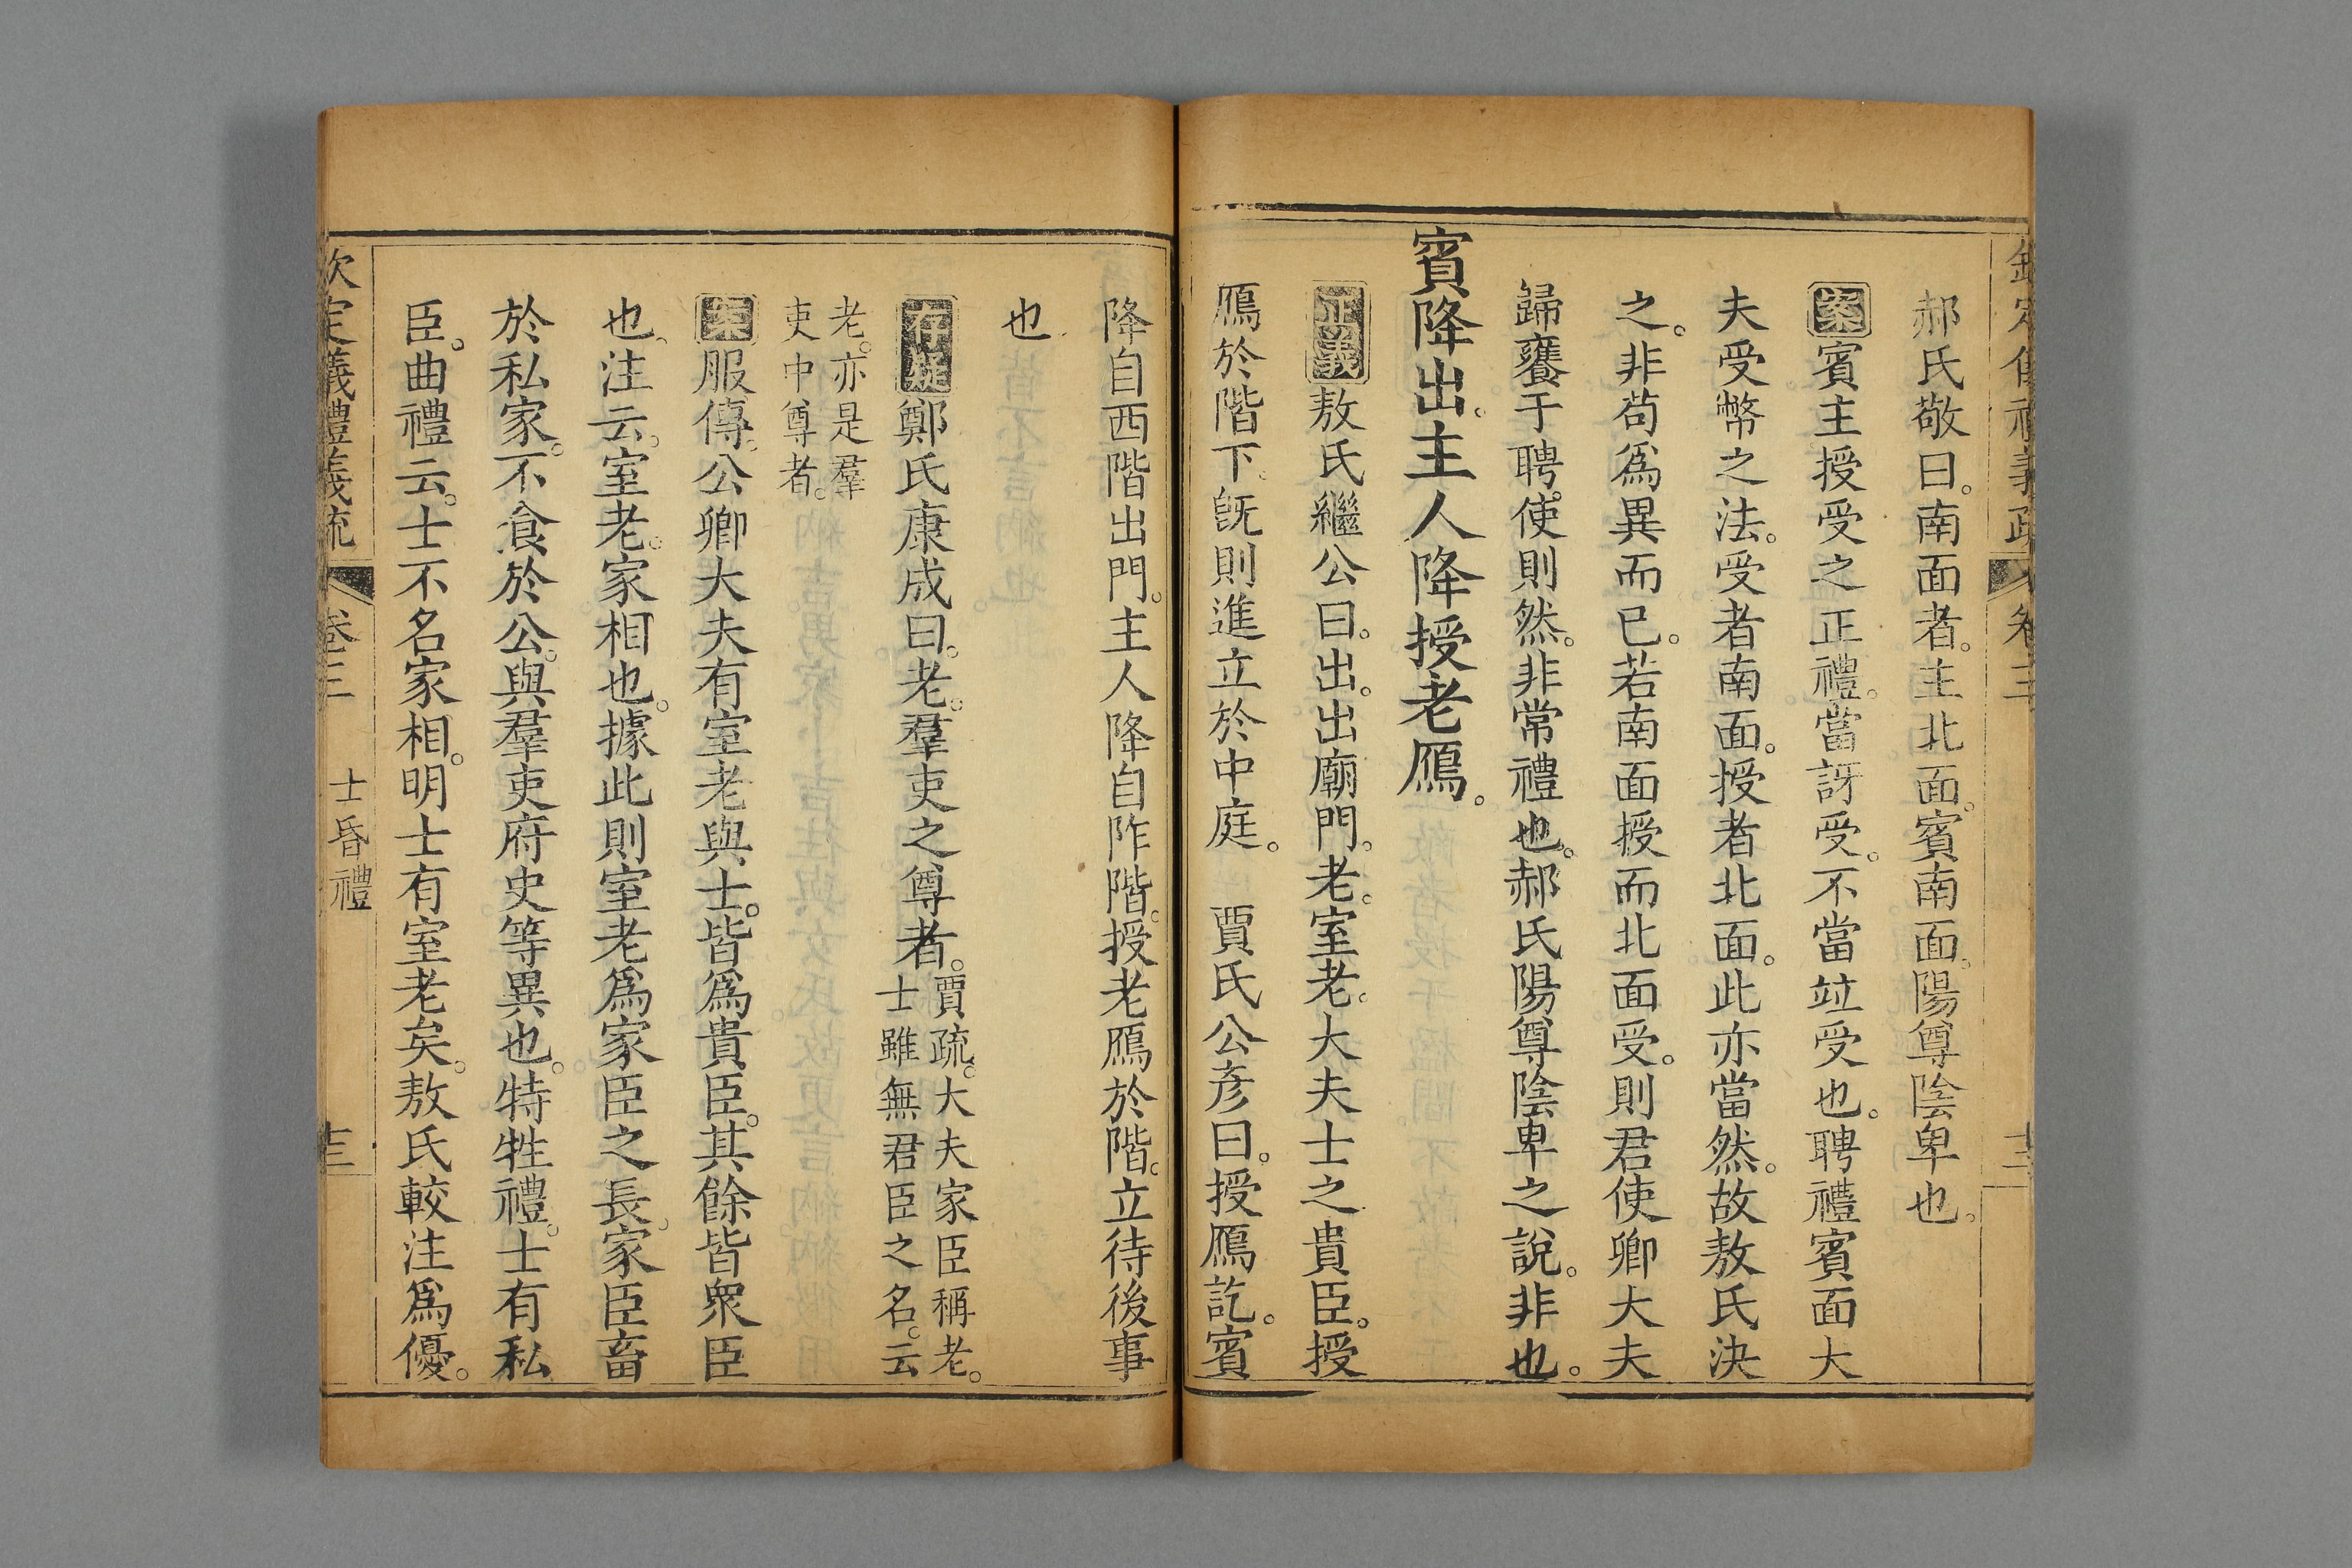 郝氏敬曰。南面者。主北面。賓南面。陽尊陰卑也。
案賓主授受之正禮。當訝受。不當竝受也。聘禮賓面大
夫受幣之法。受者南面。授者北面。此亦當然。故敖氏決
之。非苟爲異而已。若南面授而北面受。則君使卿大夫
歸饔于聘。使則然。非常禮也。郝氏陽尊陰卑之說。非也。
賓降出。主人降授老鴈。
正義敖氏繼公曰。出。出廟門。老。室老。大夫士之貴臣。授
鴈於階下。旣則進立於中庭。 賈氏公彥曰。授鴈訖。賓
降自西階出門。主人降自阼階。授老鴈於階。立待後事
也
存疑鄭氏康成曰。老。羣吏之尊者。賈疏。大夫家臣稱老。
士雖無君臣之名。云
老。亦是羣
吏中尊者。
案服傳。公卿大夫有室老與士。皆爲貴臣。其餘皆衆臣
也。注云。室老。家相也。據此則室老爲家臣之長。家臣畜
於私家。不食於公。與羣吏府史等異也。特牲禮。士有私
臣。曲禮云。士不名家相。明士有室老矣。敖氏較注爲優。
欽定儀禮義疏 卷三 士昏禮 十三